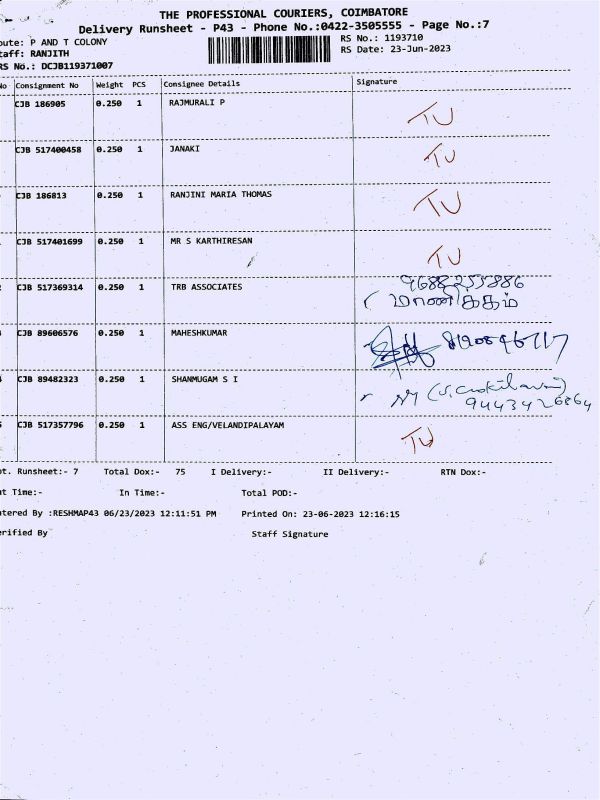 THE PROFESSIONAL COURIERS, COIMBATORE
Delivery Runsheet - P43 - Phone No.:0422-3505555 - Page No.:7
oute: P AND T COLONY
RS No.: 1193710
taff: RANJITH
RS Date: 23-Jun-2023
RS No.: DCJB119371007
No Consignment No Weight PCS Consignee Details Signature
CJB 186905 0.250 1 RAJMURALI P TU
CJB 517400458 0.250 1 JANAKI TU
CJB 186813 0.250 1 RANJINI MARIA THOMAS TU
CJB 517401699 0.250 1 MR S KARTHIRESAN TU
9688255886
CJB 517369314 0.250 1 TRB ASSOCIATES
மாணிக்கம்
CJB 89606576 0.250 1 MAHESHKUMAR
CJB 89482323 0.250 1 SHANMUGAM S I
CJB 517357796 0.250 1 ASS ENG/VELANDIPALAYAM TU
ot. Runsheet:- 7 Total Dox:- 75 I Delivery:- II Delivery:- RTN Dox:-
ut Time:- In Time:- Total POD:-
ntered By :RESHMAP43 06/23/2023 12:11:51 PM Printed On: 23-06-2023 12:16:15
erified By Staff Signature